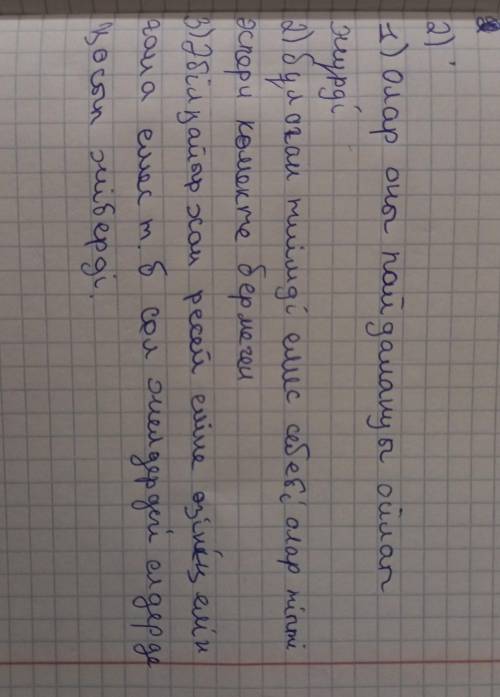 2)
1) Олар оны пайдалануы ойлап
жүрді
2) Бұл оған тиімді емес себебі олар тіпті
әспери көмекте бермеген
3) Әбілқайыр хан ресей еліне өзінің елін
ғана емес т. б сол жердегі елдерде
қосып жіберді.